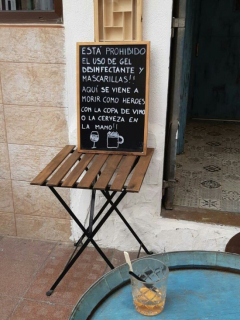 ESTA PROHIBIDO
EL USO DE GEL
DESINFECTANTE Y
MASCARILLAS!!
AQUÍ SE VIENE A
MORIR COMO HEROES
CON LA COPA DE VINO
O LA CERVEZA EN
LA MANO!!